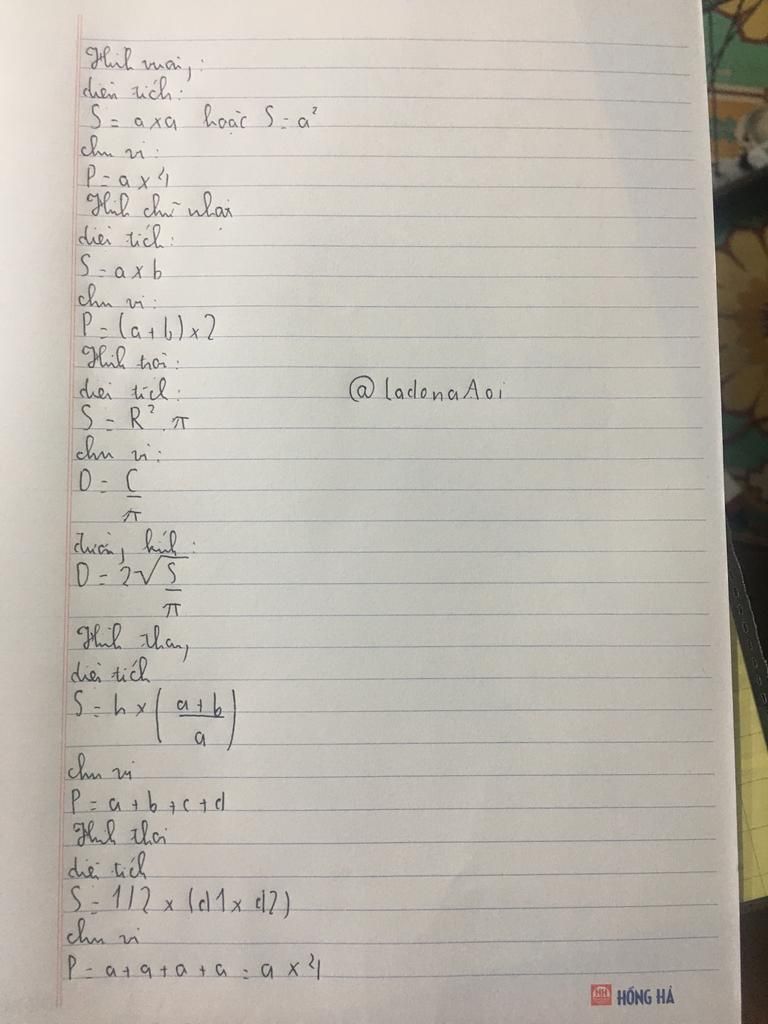 Hình vuôn,:
diện tích:
S = a x a hoặc S = a²
chu vi:
P = a x 4
Hình chữ nhật
diện tích:
S = a x b
chu vi:
P = (a + b) x 2
Hình tròn:
diện tích: @ladonaAoi
S = R² . π
chu vi:
D = C/π
đườn, kính:
D = 2√S/π
Hình than,
diện tích
S = h x (a + b / a)
chu vi
P = a + b + c + d
Hình thoi
diện tích
S = 1/2 x (d1 x d2)
chu vi
P = a + a + a + a = a x 4
HỒNG HÀ